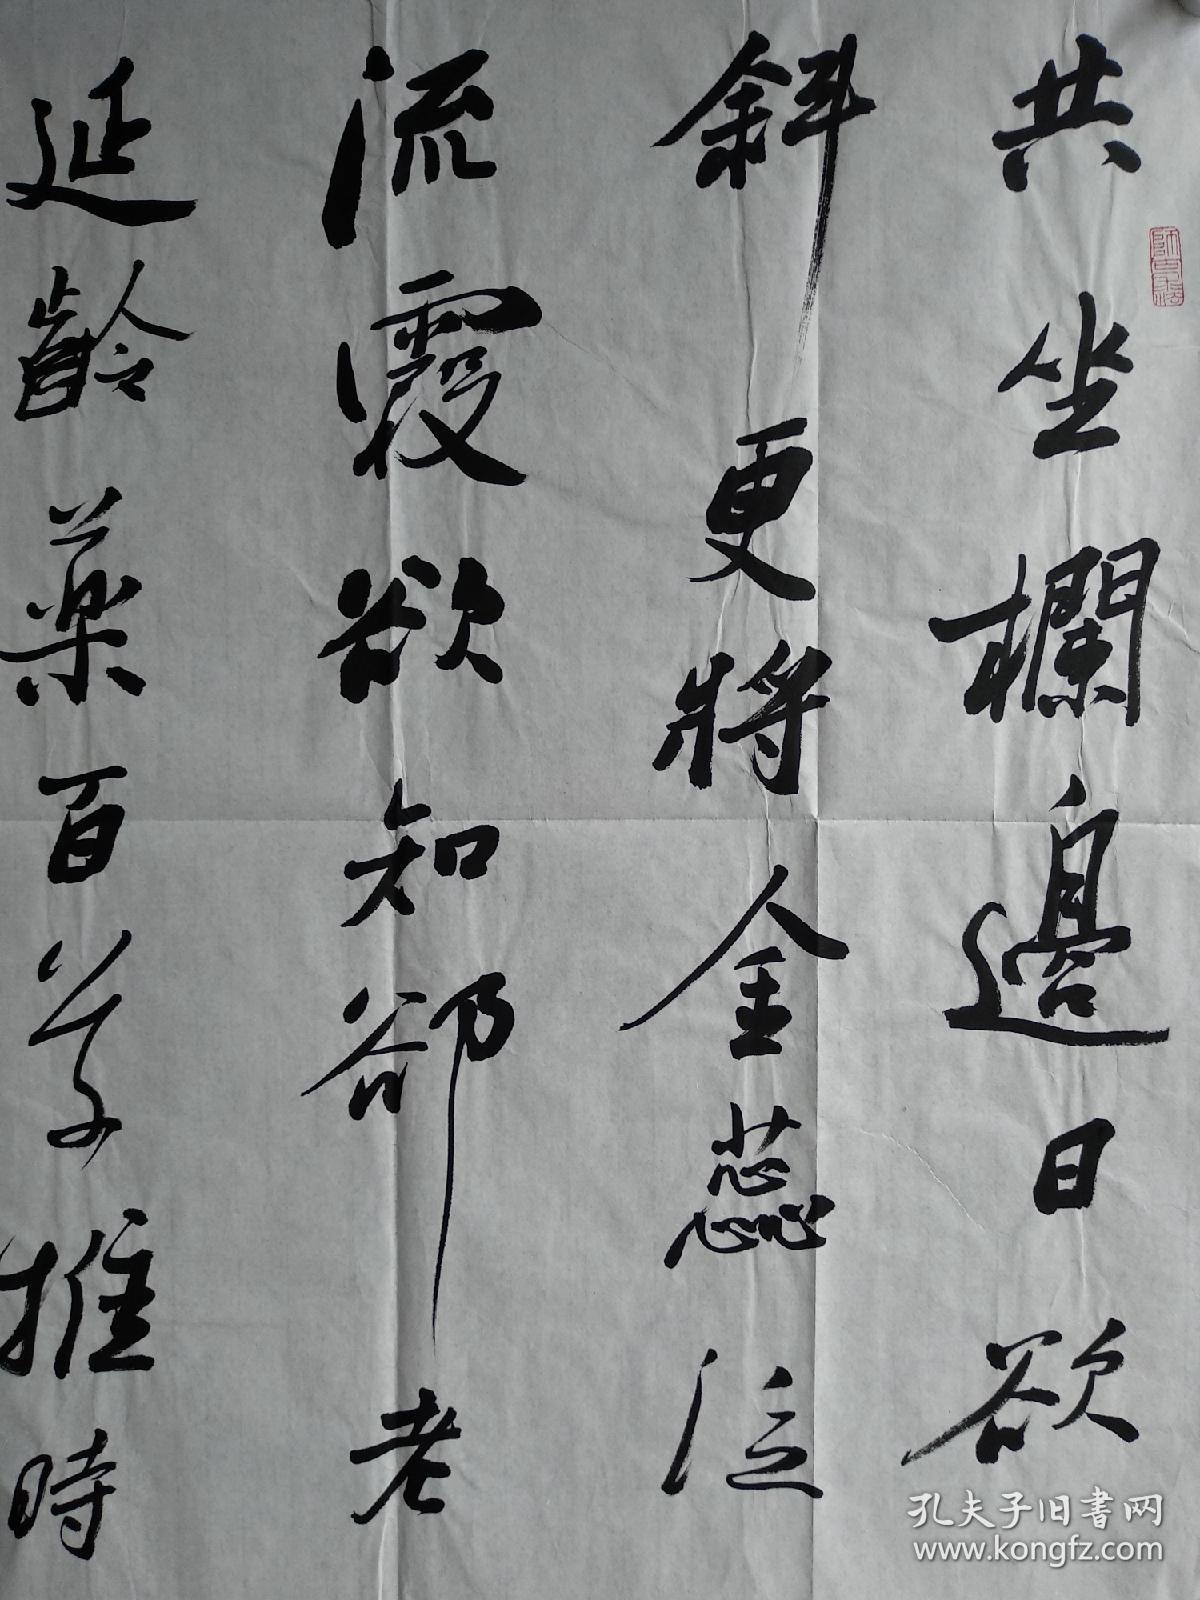 共坐欄邊日欲
斜更將金蕊泛
流霞欲知郤老
延齡藥百草推時
孔夫子旧書网
www.kongfz.com